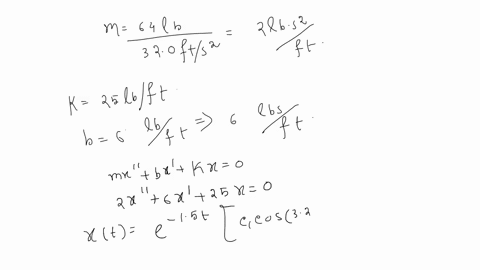 m = 64 lb / 32.0 ft/s² = 2 lb·s²/ft.
K = 25 lb/ft.
b = 6 lb/ft => 6 lbs/ft
mx'' + bx' + Kx = 0
2x'' + 6x' + 25x = 0
x(t) = e^-1.5t [c₁cos(3.2